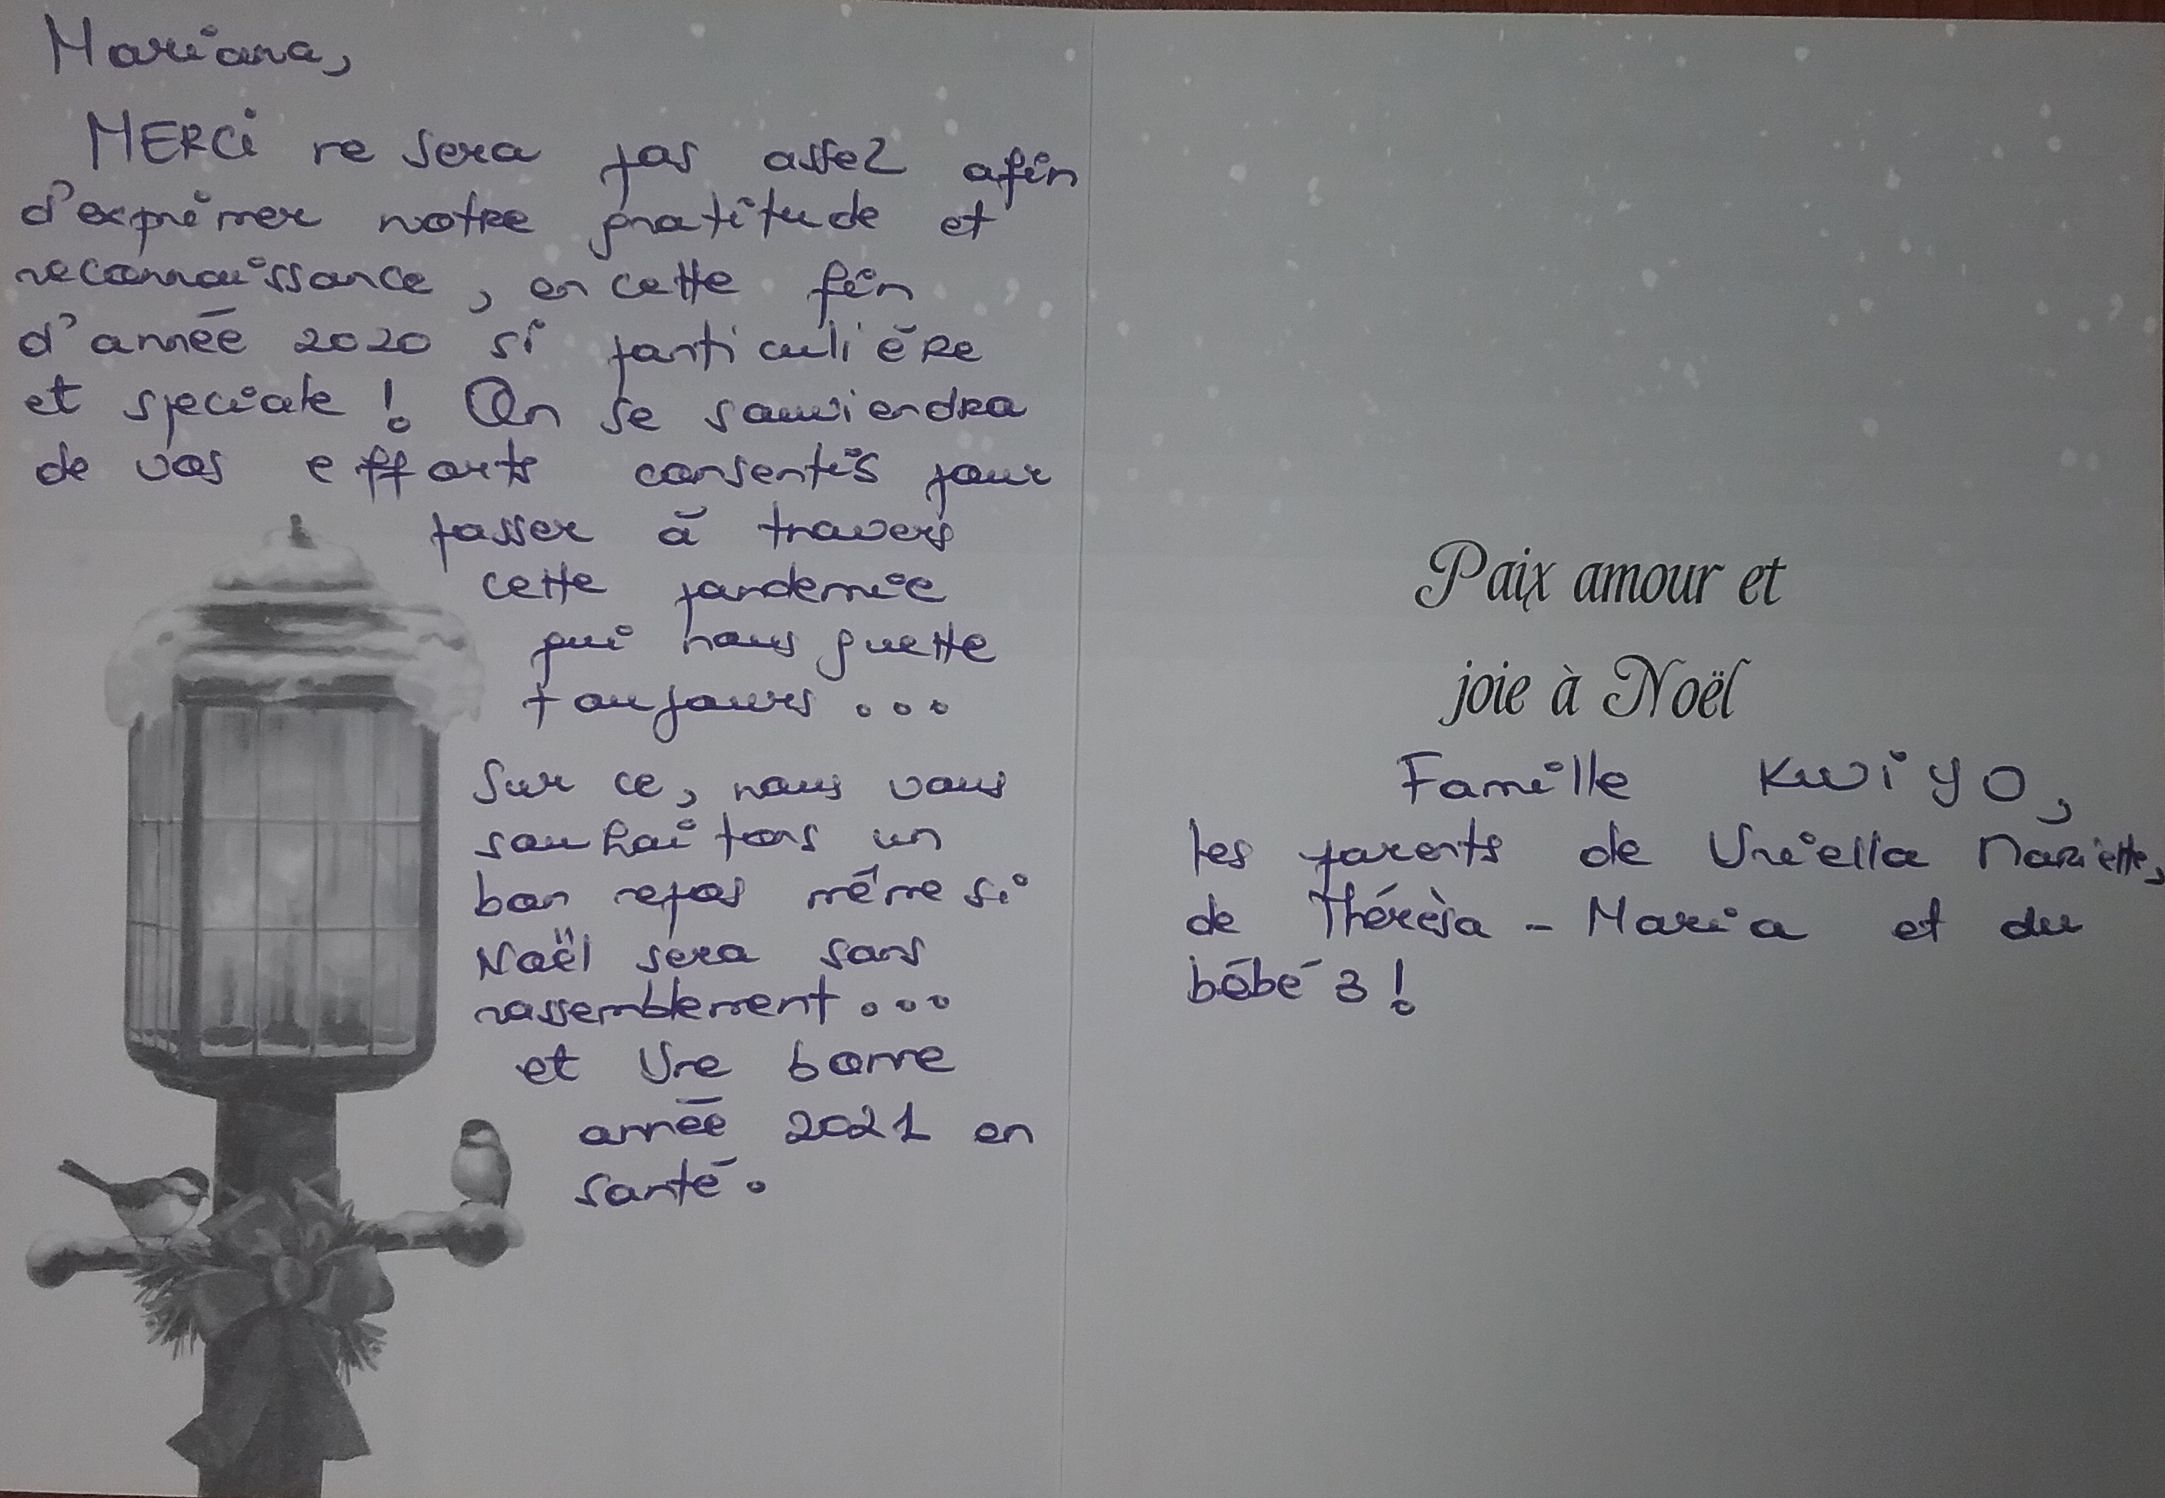 Mariana,
MERCi ne sera pas assez afin
d'exprimer notre gratitude et
reconnaissance, en cette fin
d'année 2020 si particulière
et speciale ! On se souviendra
de vos efforts consentis pour
passer à travers
cette pandemie
qui nous guette
toujours ...
Sur ce, nous vous
souhaitons un
bon repos même si
Noël sera sans
rassemblement ...
et Une bonne
année 2021 en
santé.
Paix amour et
joie à Noël
Famille KWiYO,
les parents de Uriella Mariette,
de Thérèsa - Maria et du
bébé 3 !